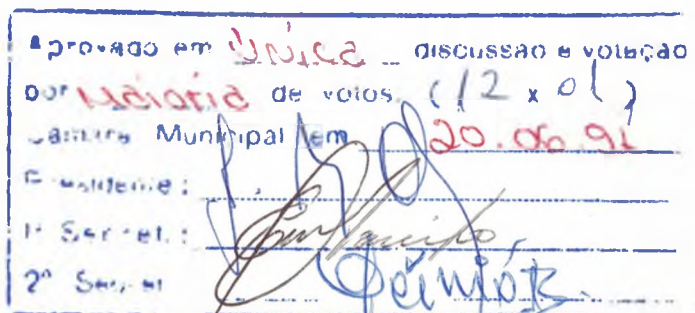 Aprovado em Única discussão e votação
por Maioria de votos (12 x 01)
Câmara Municipal em 20.06.91
Presidente:
1º Secret.:
2º Secret